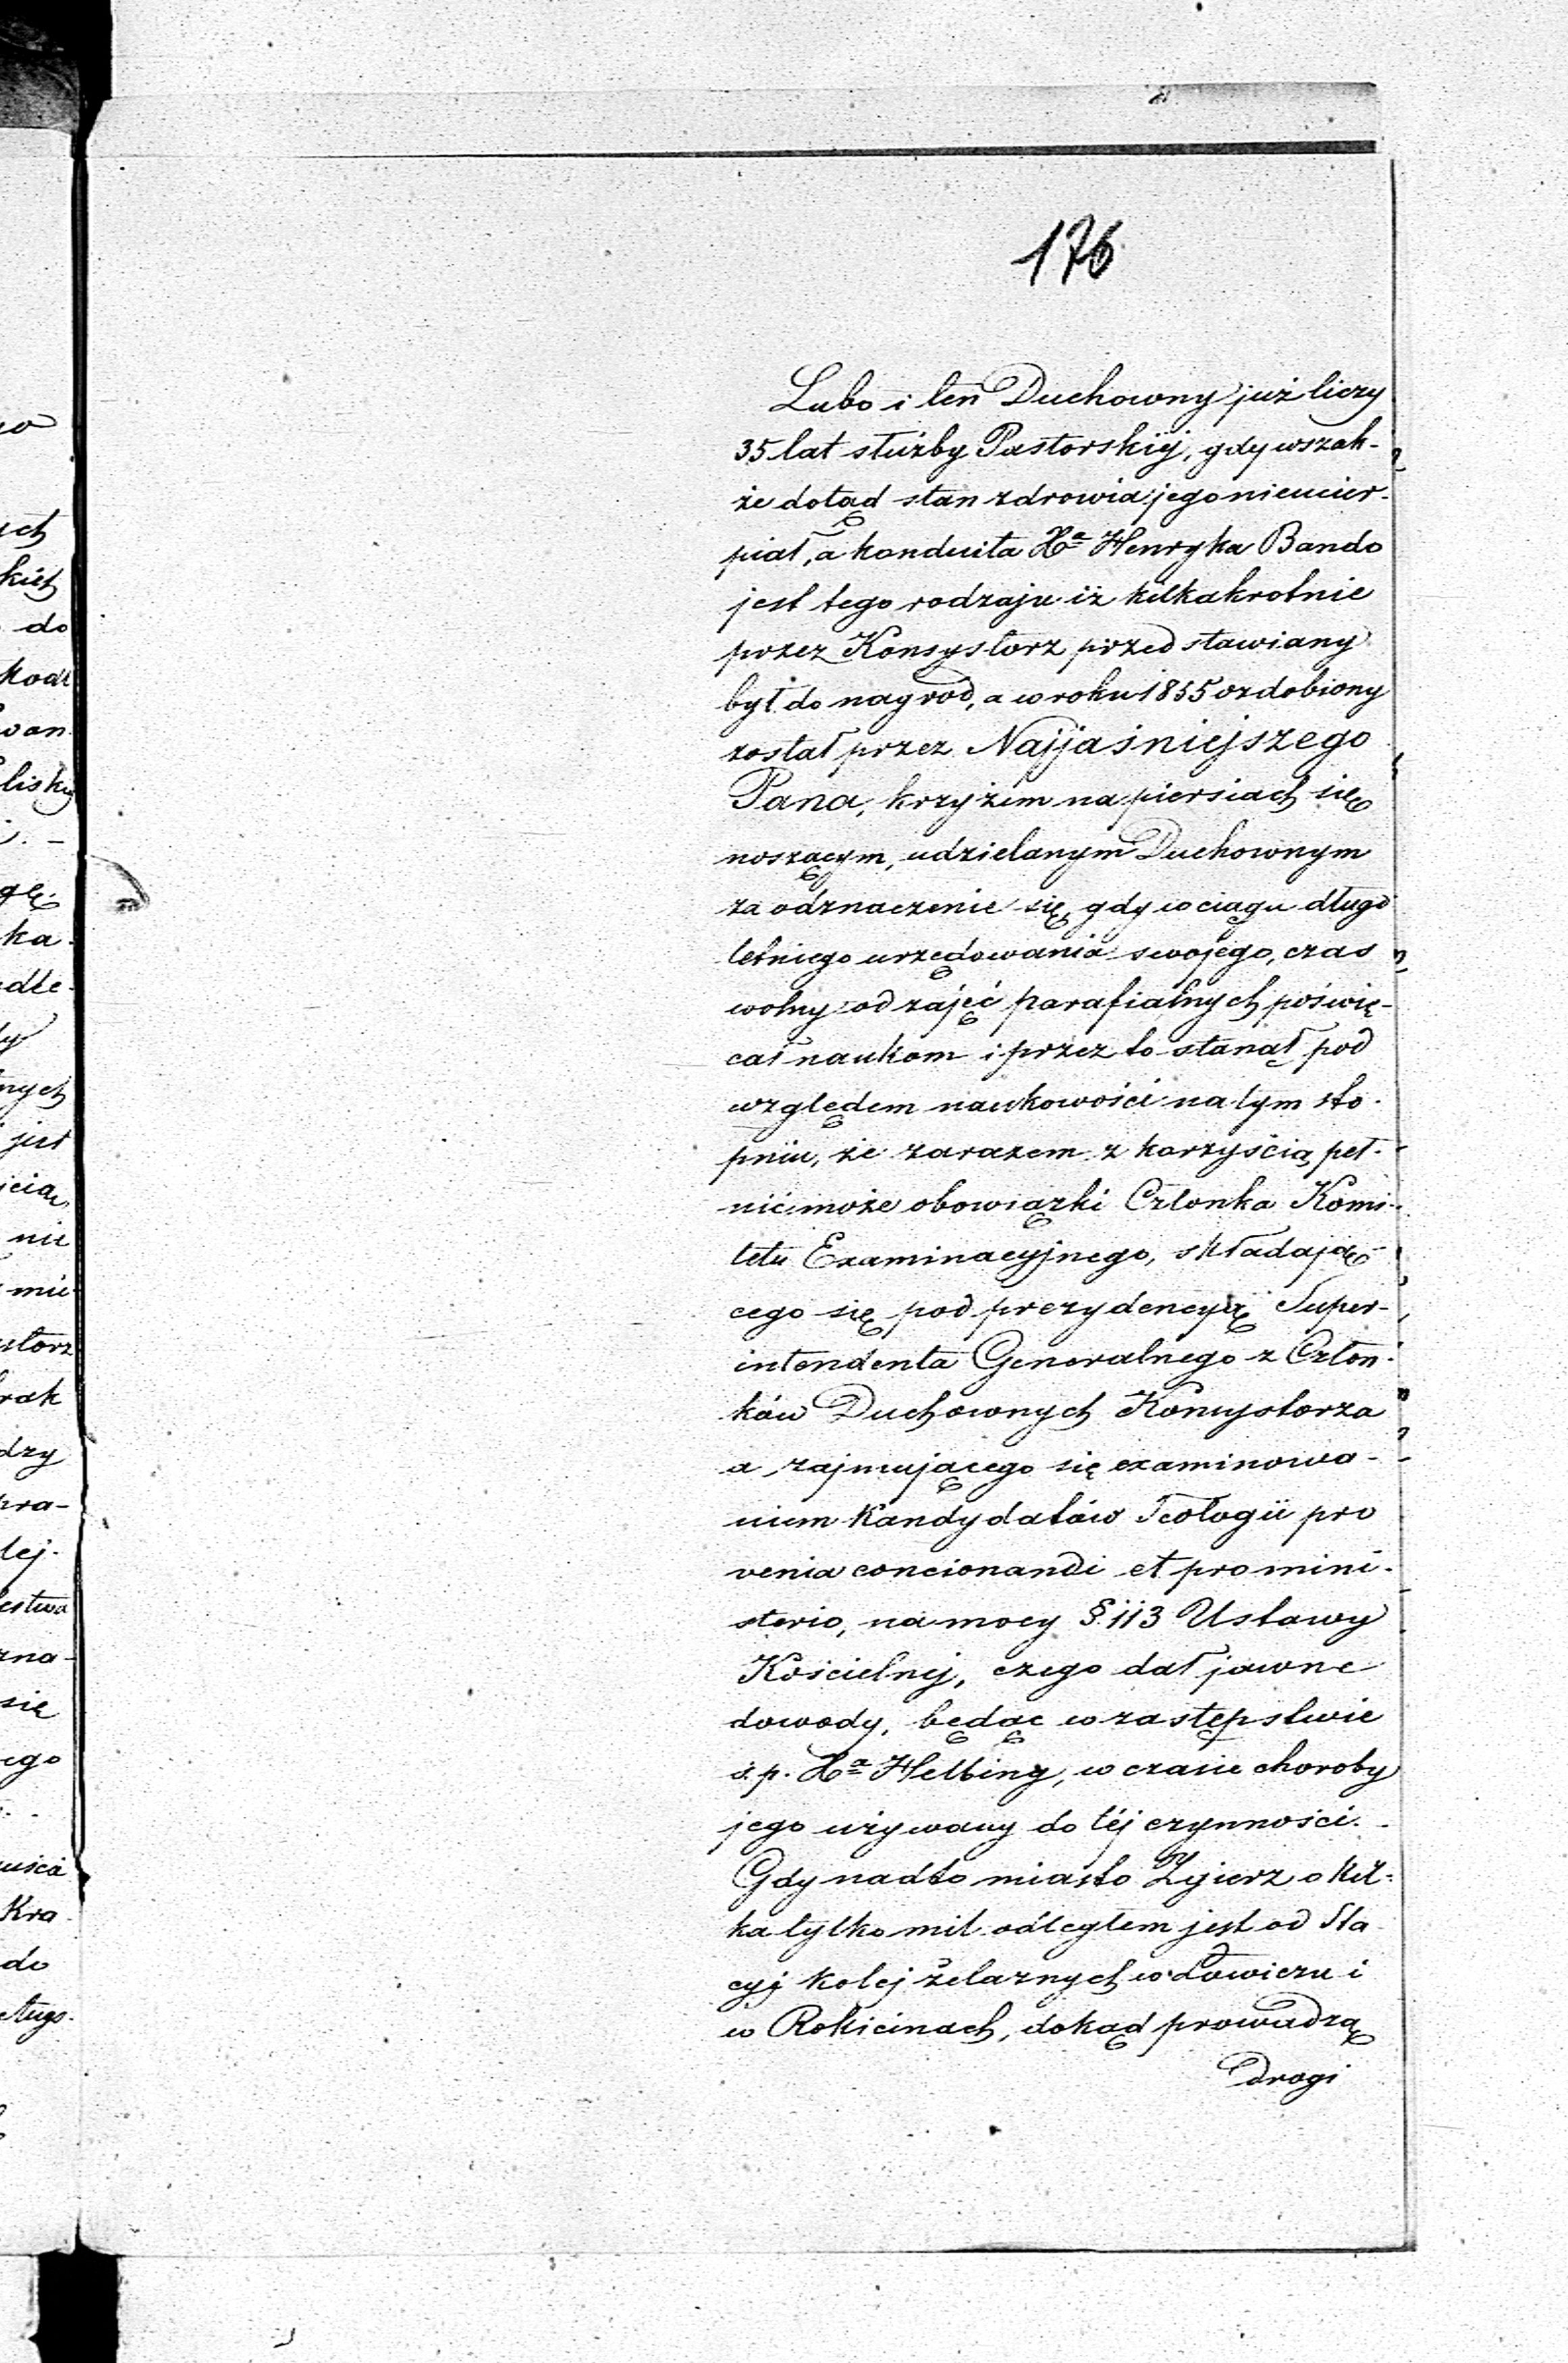 176
Lubo i ten Duchowny już liczy
35 lat służby Pastorskiéj, gdy wszak-
że dotąd stan zdrowia jego nieucier-
piał, a konduita Xa Henryka Bando
jest tego rodzaju iż kilkakrotnie
przez Konsystorz przedstawiany
był do nagrod, a w roku 1855 ozdobiony
został przez Najjaśniejszego
Pana, krzyżem na piersiach się
noszącym, udzielanym Duchownym
za odznaczenie się, gdy w ciągu długo
letniego urzędowania swojego, czas
wolny od zajęć parafialnych poświę-
cał naukom i przez to stanął pod
względem naukowości na tym sto-
pniu, że zarazem z korzyścią peł-
nić może obowiązki Członka Komi-
tetu Examinacyjnego, składają-
cego się pod prezydencyą Super-
intendenta Generalnego z Człon-
ków Duchownych Konsystorza
a zajmującego się examinowa-
niem Kandydatów Teologii pro
venia concionandi et pro mini-
sterio, na mocy § 113 Ustawy
Kościelnej, czego dał jawne
dowody, będąc w zastępstwie
ś. p. Xa Helbing, w czasie choroby
jego używany do téj czynności.
Gdy nadto miasto Zgierz o kil-
ka tylko mil odległem jest od Sta-
cyj kolej żelaznych w Łowiczu i
w Rokicinach, dokąd prowadzą
drogi